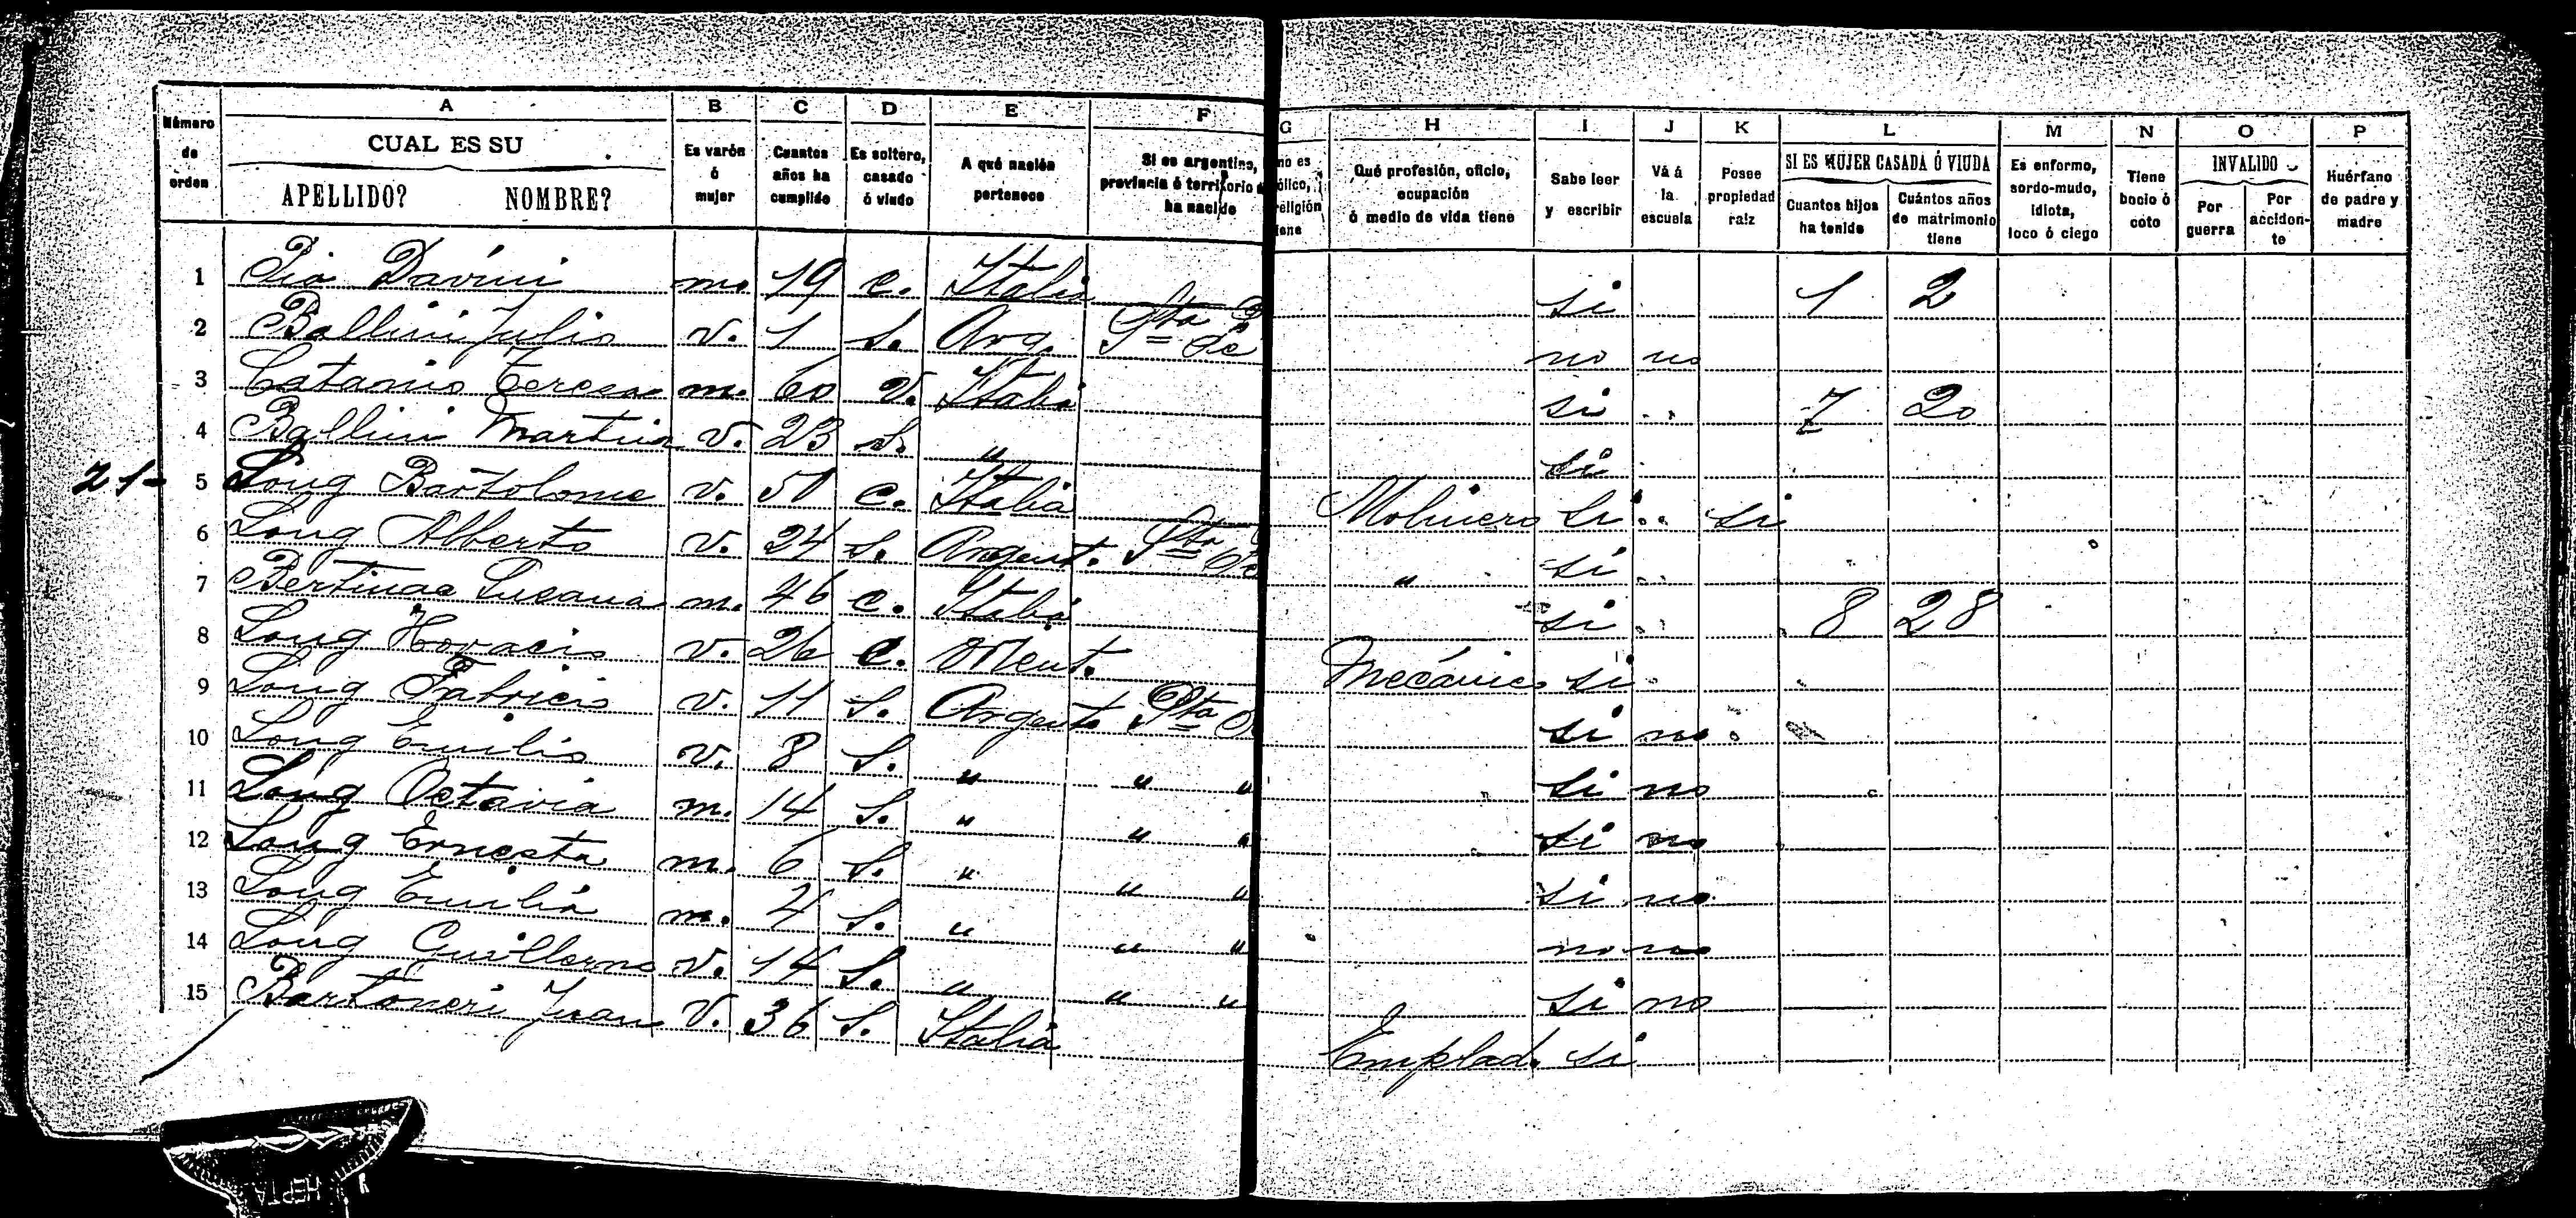 A B C D E F G H I J K L M N O P
Número de orden
CUAL ES SU
APELLIDO? NOMBRE?
Es varón ó mujer
Cuantos años ha cumplido
Es soltero, casado ó viudo
A qué nación pertenece
Si es argentino, provincia ó territorio
ha nacido
no es
ólico,
religión
iene
Qué profesión, oficio, ocupación ó medio de vida tiene
Sabe leer y escribir
Vá á la escuela
Posee propiedad raíz
SI ES MUJER CASADA Ó VIUDA
Cuantos hijos ha tenido
Cuántos años de matrimonio tiene
Es enfermo, sordo-mudo, idiota, loco ó ciego
Tiene bocio ó coto
INVALIDO
Por guerra
Por acciden-te
Huérfano de padre y madre
1 Pia Davini m. 19 c. Italia si 1 2
2 Ballini Julio v. 1 s. Arg. Sta Fe no no
3 Catanio Teresa m. 60 v. Italia si " 7 20
4 Ballini Martin v. 23 s. " si
21- 5 Long Bartolome v. 51 c. Italia Molinero si " si
6 Long Alberto v. 24 s. Argent. Sta Fe " si "
7 Bertinac Susana m. 46 c. Italia si " 8 28
8 Long Horacio v. 26 c. Orient. Mecánico si
9 Long Patricio v. 11 s. Argent. Sta si no
10 Long Emilio v. 8 s. " " " si no
11 Long Octavia m. 14 s. " " " si no
12 Long Ernesta m. 6 s. " " " si no
13 Long Emilia m. 4 s. " " " no no
14 Long Guillermo v. 14 s. " " " si no
15 Bartoneri Juan v. 36 s. Italia Emplead. si
HEPTA